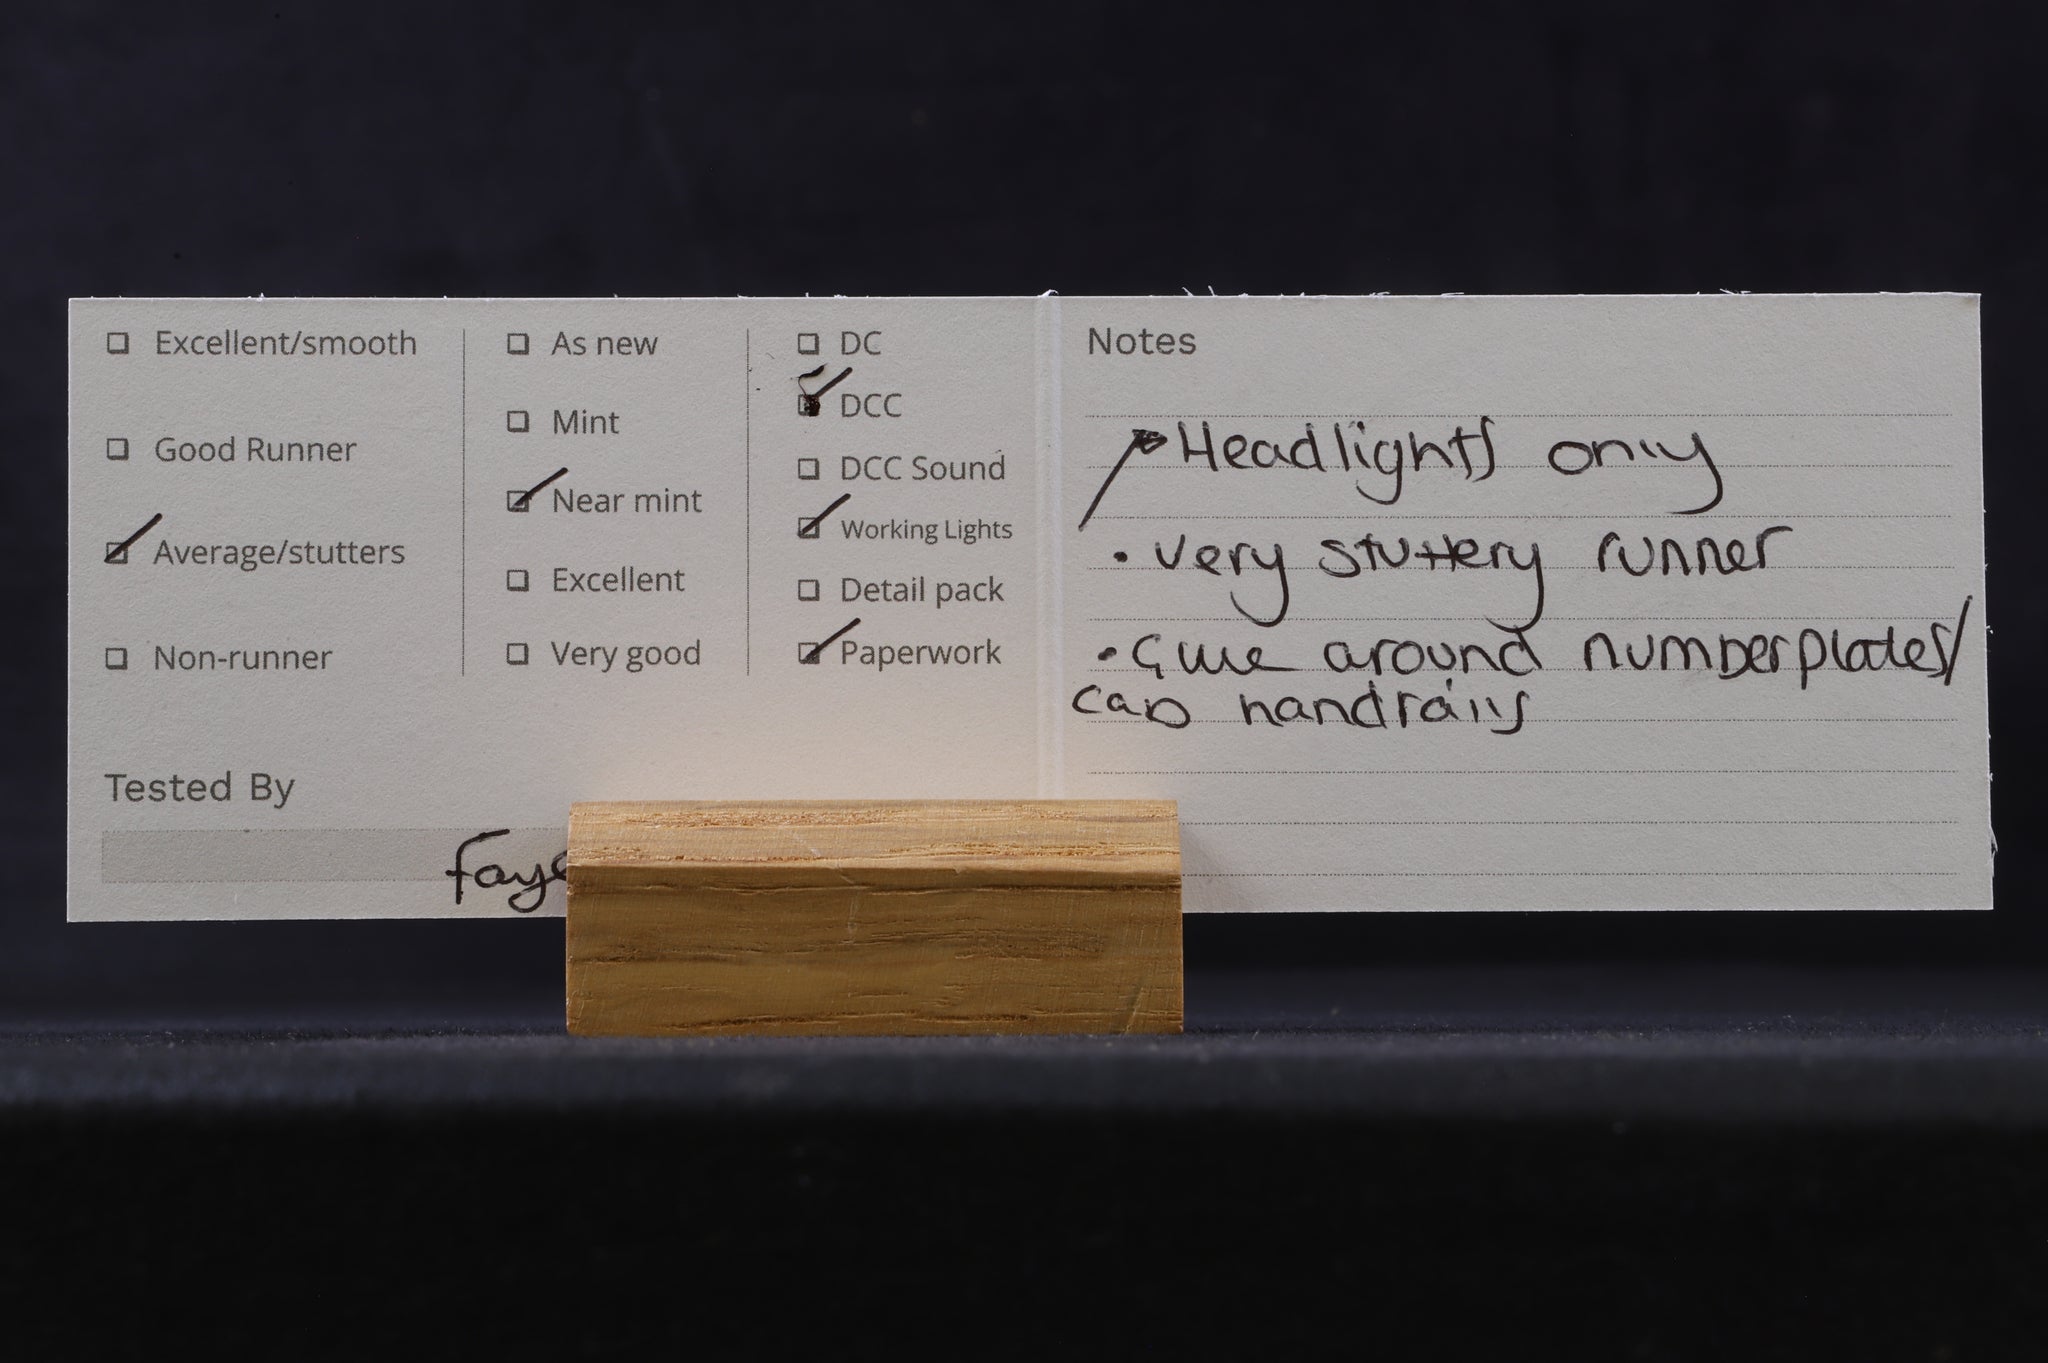 Excellent/smooth
Good Runner
Average/stutters
Non-runner
As new
Mint
Near mint
Excellent
Very good
DC
DCC
DCC Sound
Working Lights
Detail pack
Paperwork
Tested By
faye
Notes
Headlights only
• very stuttery runner
• Glue around numberplates/
cab handrails